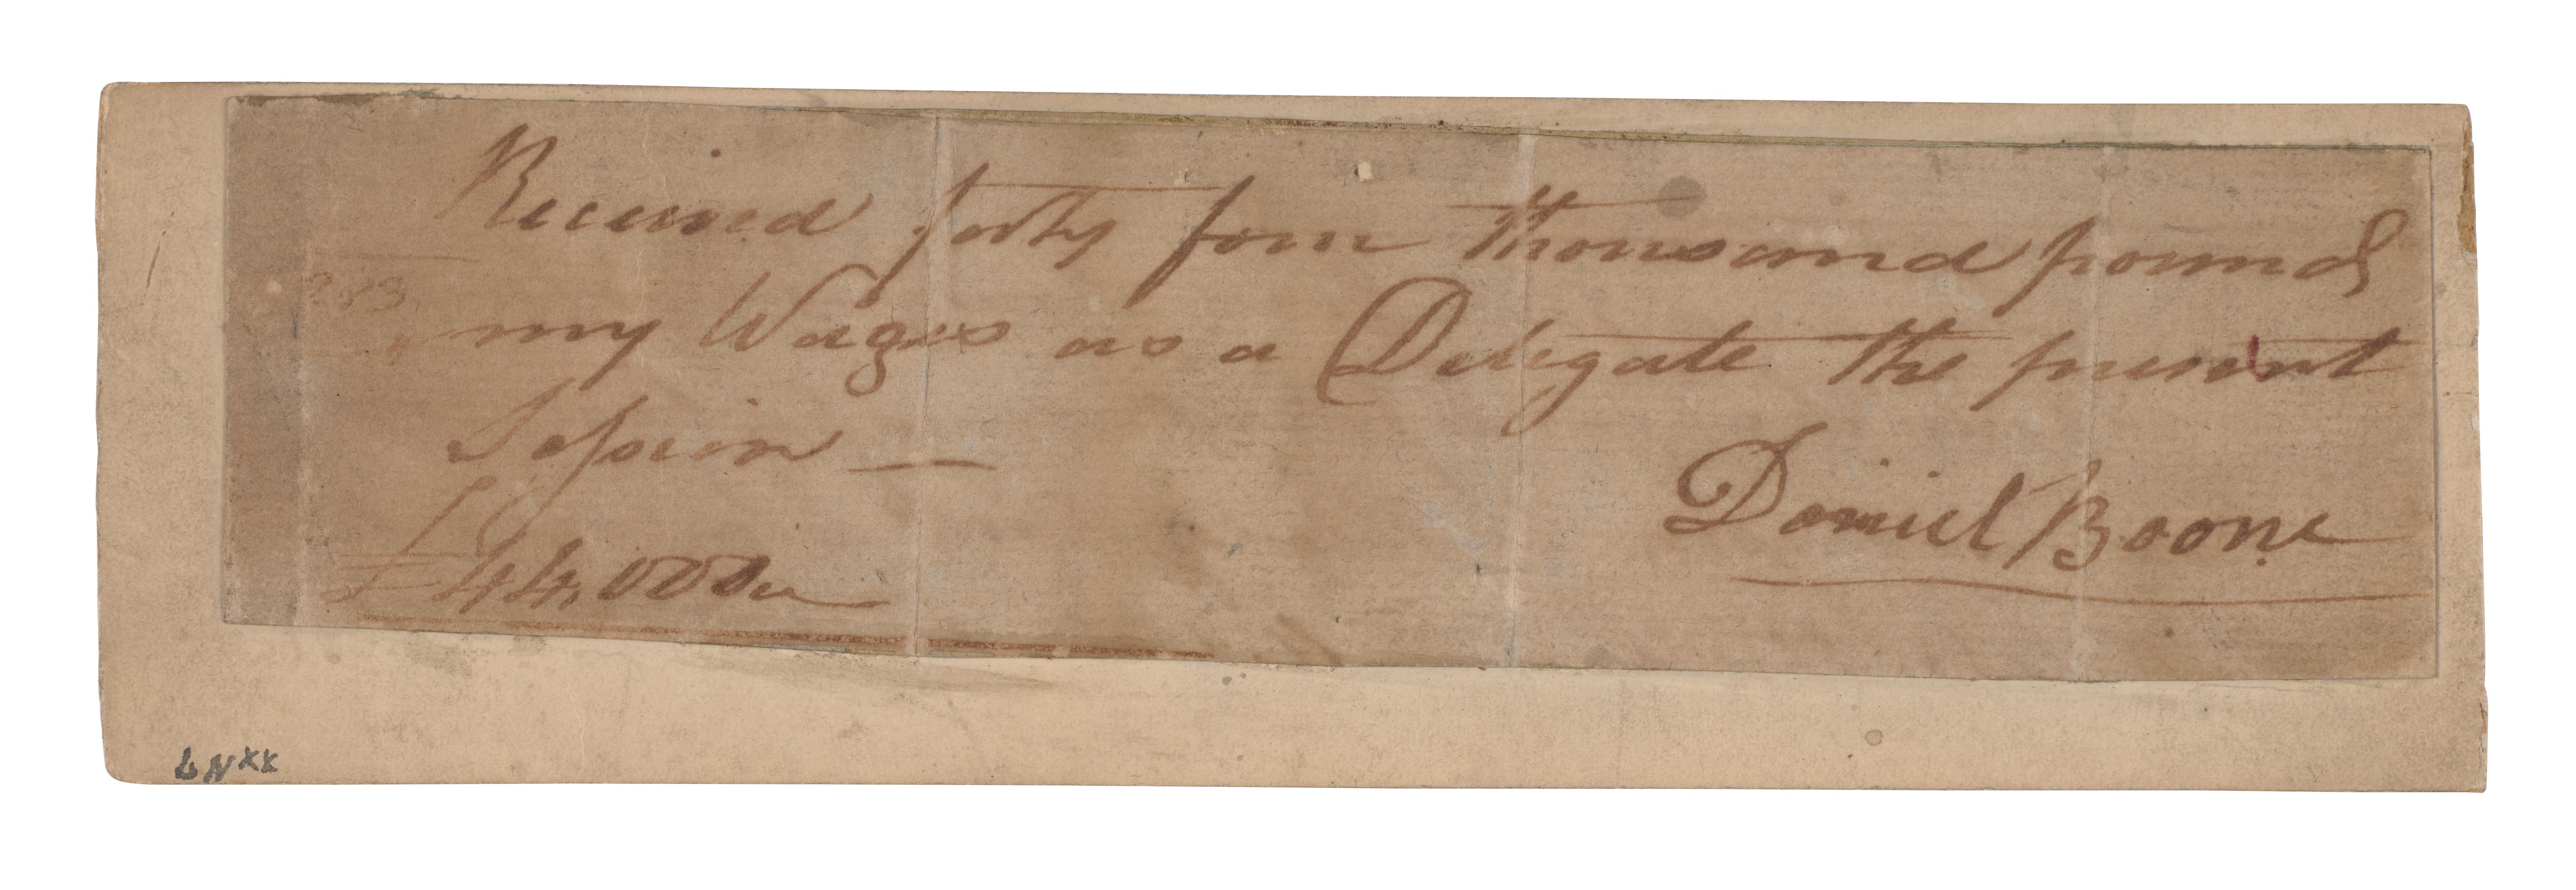 Received forty four thousand pounds
283
my Wages as a Delegate the present
Session —
£44,000
Daniel Boone